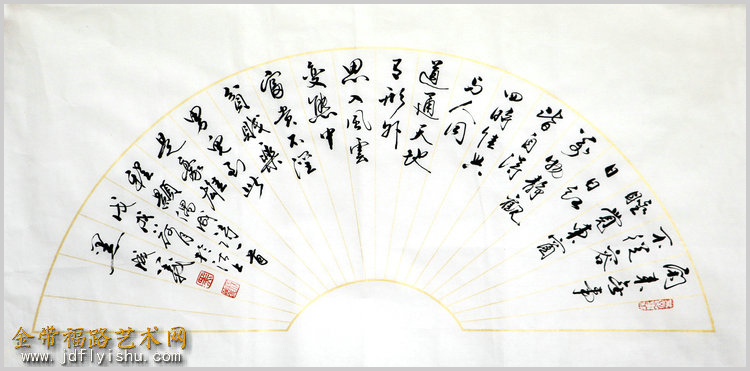 闲来無事
不從容
睡覺東窗
日已红
萬物静觀
皆自得
四時佳興
与人同
道通天地
有形外
思入風雲
變態中
富贵不淫
貧賤樂
男兒到此
是豪雄
程顥偶成詩一首
戊戌荷月於
金带福路艺术网
www.jdflyishu.com